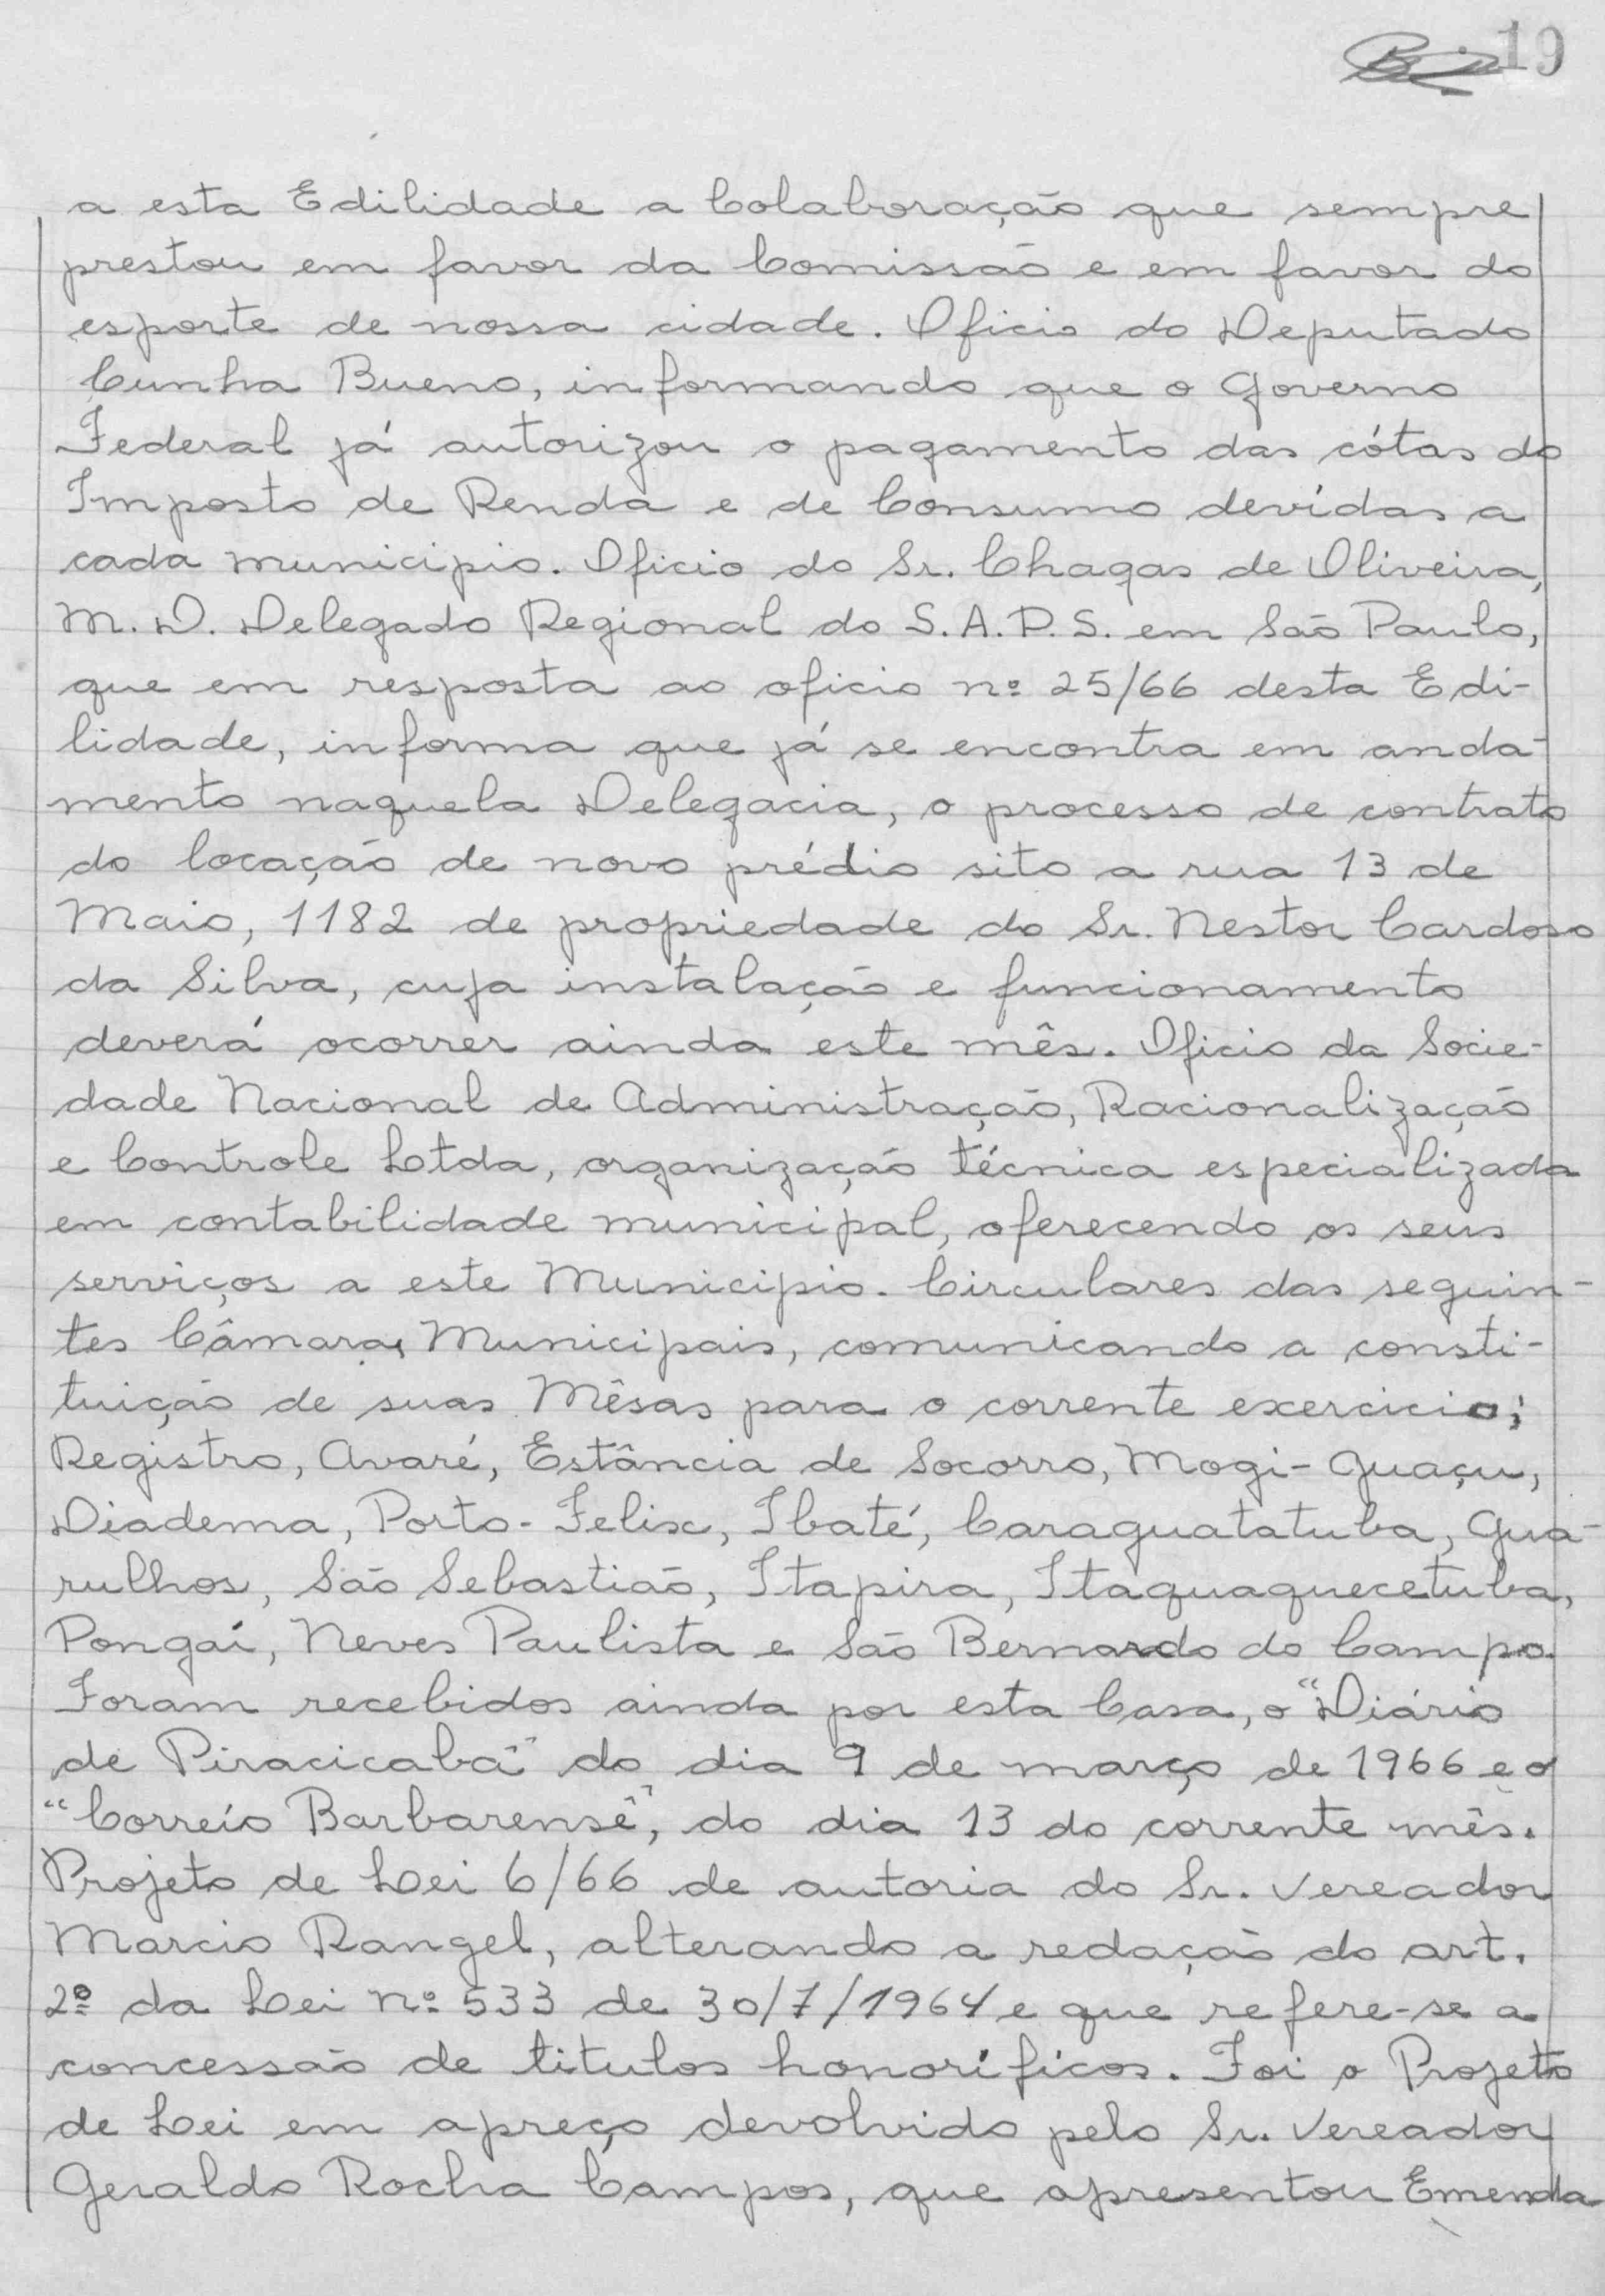 19
a esta Edilidade a Colaboração que sempre
prestou em favor da Comissão e em favor do
esporte de nossa cidade. Oficio do Deputado
Cunha Bueno, informando que o Governo
Federal já autorizou o pagamento das cótas do
Imposto de Renda e de Consumo devídas a
cada municipio. Oficio do Sr. Chagas de Oliveira,
M. D. Delegado Regional do S. A. P. S. em São Paulo,
que em resposta ao oficio nº 25/66 desta Edi-
lidade, informa que já se encontra em anda-
mento naquela Delegacia, o processo de contrato
do locação de novo prédio sito a rua 13 de
Maio, 1182 de propriedade do Sr. Nestor Cardoso
da Silva, cuja instalação e funcionamento
deverá ocorrer ainda este mês. Oficio da Socie-
dade Nacional de Administração, Racionalização
e Controle Ltda, organização técnica especializada
em contabilidade municipal, oferecendo os seus
serviços a este Municipio. Circulares das seguin-
tes Câmaras Municipais, comunicando a consti-
tuição de suas Mêsas para o corrente exercicio;
Registro, Avaré, Estância de Socorro, Mogi-Guaçu,
Diadema, Porto-Felix, Ibaté, Caraguatatuba, Gua-
rulhos, São Sebastião, Itapira, Itaquaquecetuba,
Pongaí, Neves Paulista e São Bernardo do Campo.
Foram recebidos ainda por esta Casa, o "Diário
de Piracicaba" do dia 9 de março de 1966 e o
"Correio Barbarense", do dia 13 do corrente mês.
Projeto de Lei 6/66 de autoria do Sr. Vereador
Marcio Rangel, alterando a redação do art.
2º da Lei nº 533 de 30/7/1964 e que refere-se a
concessão de titulos honoríficos. Foi o Projeto
de Lei em apreço devolvido pelo Sr. Vereador
Geraldo Rocha Campos, que apresentou Emenda